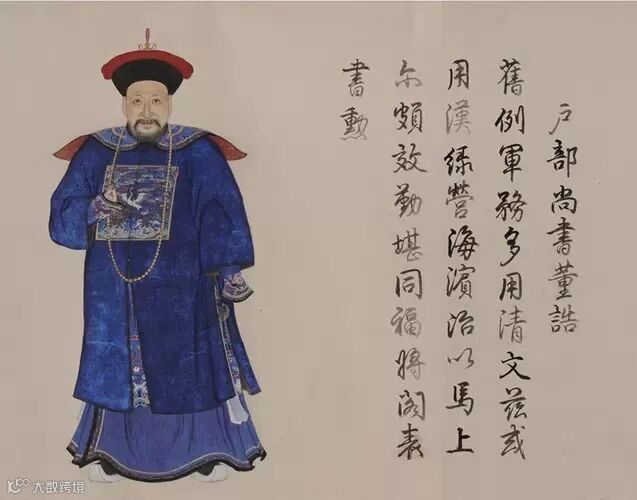 戶部尚書董誥
舊例軍務多用清文茲或
用漢綠營海濱治以馬上
尓頗效勤堪同福將閣表
書勲
大数跨境